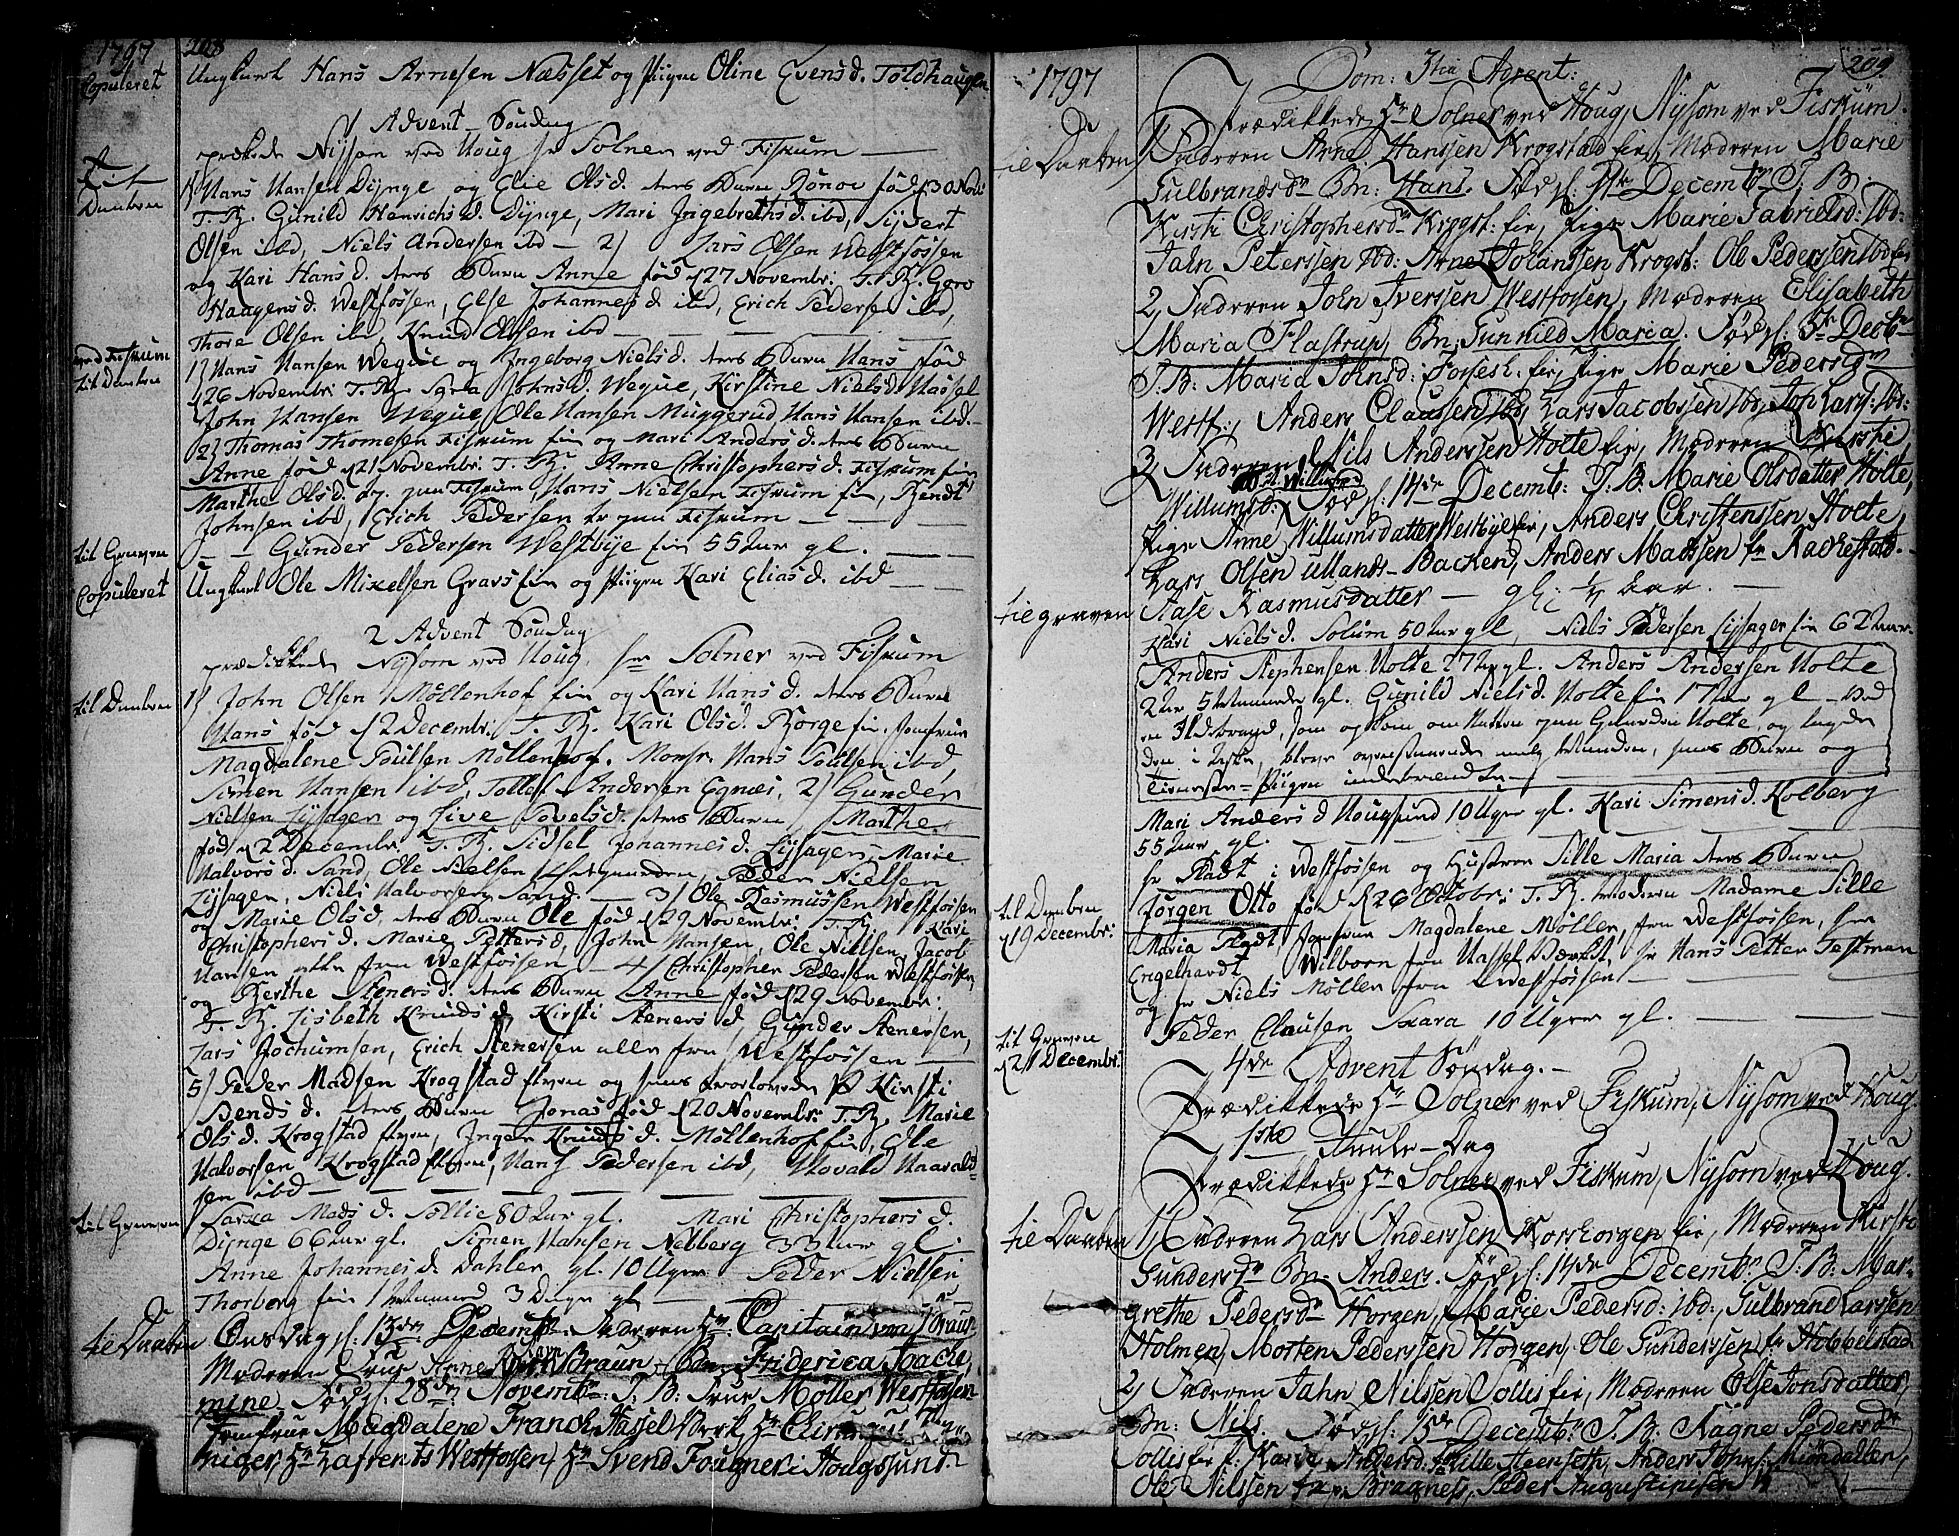 1797 208
Copuleret Ungkarl Hans Arnesen Næsset og Pigen Oline Evensd. Foldhaugen
1 Advent Söndag
prækede Nijsom ved Houg hr Solner ved Fiskum
Til Daaben 1) Hans Hansen Dijnge og Elie Olsd. teres Barn Rönov fød d 30 Nov:
T. B. Gunild Henrichsd. Dijnge, Mari Ingebrethsd. ibd, Sijvert
Olsen ibd, Niels Andersen ibd — 2) Lars Olsen Westfossen
og Kari Hansd. teres Barn Anne fød d 27 Novembr: T. B. Gero
Haagensd. Westfossen, Else Johannesd. ibd, Erich Pedersen ibd,
Thore Olsen ibd Knud Olsen ibd
ved Fiskum til Daaben 1) Hans Hansen Wegue og Ingeborg Nielsd. teres Barn Hans fød
d 26 Novembr: T. B. Johnsd. Wegue, Kirstine Nielsd. Hassel
John Hansen Wegue, Ole Hansen Muggerud Hans Hansen ibd.
2) Thomas Thomesen Fiskum eie og Mari Andersd. teres Barn
Anne fød d 21 Novembr: T. B. Anne Christophersd. Fiskum eie
Marthe Olsd. paa Fiskum Hans Nielsen Fiskum eie, Bendt
Johnsen ibd, Erich Pedersen paa Fiskum
til Graven Gunder Pedersen Westbije eie 55 Aar gl.
Copuleret Ungkarl Ole Mixelsen Gravs eie og Pigen Kari Eliasd. ibd
2 Advent Söndag
prædikkede Nijsom ved Houg, hr Solner ved Fiskum
til Daaben 1) John Olsen Möllenhof eie og Kari Hansd. teres Barn
Hans fød d 2 Decembr: T. B. Kari Olsd. Borge eie, Jomfrue
Magdalene Poulsen Möllenhof. Monsr. Hans Poulsen ibd,
Simen Hansen ibd, Tollef Andersen Egnæs, 2) Gunder
Nielsen Lijsager og Live Povelsd. teres Barn Marthe
fød d 2 Decembr. T. B. Sidsel Johannesd. Lijsager, Marie
Halvorsd. Sand, Ole Nielsen Peder Nielsen
Lijsager, Niels Halvorsen Sand. — 3) Ole Rasmussen Westfossen
og Marie Olsd. teres Barn Ole fød d 29 Novembr: T. B. Kari
Christophersd. Marie Pettersd, John Hansen, Ole Nielsen, Jacob
Hansen alle fra Westfossen — 4) Christopher Pedersen Westfossen
og Berthe Stenersd. teres Barn Anne fød d 29 Novembr:
T. B. Lisbeth Knudsd. Kirsti Stenersd. Gunder Stenersen,
Lars Jochumsen, Erich Stenersen alle fra Westfossen
5) Peder Madsen Krogstad Elven og hans trolovede P Kirsti
Bendsd. teres Barn Jonas fød d 20 Novembr: T. B. Marie
Olsd. Krogstad Elven, Inger Knudsd. Möllenhof eie, Ole
Halvorsen Krogstad Elven, Hans Pedersen ibd, Hovald Haavald-
sen ibd
til Graven Madsd. Sollie 80 Aar gl. Mari Christophersd.
Dijnge 66 Aar gl. Simen Hansen Nedberg 33 Aar gl.
Anne Johannesd. Dahler gl. 10 Uger Peder Nielsen
Thorberg eie 1 Maaned 3 Dage gl
til Daaben Onsdag d. 13de Decembr: Faderen Hr. Capitain von Braun
Moderen Frue Anne von Braun Bn. Friderica Joache-
mine. Fød d. 28de Novembr. T. B: Frue Möller Westfossen
Jomfrue Magdalene Franck Hassel Verk Hr. Chirurgus
niger, Hr. Lafrents Westfossen, Hr. Svend Fougner i Hougsund
1797 209
Dom: 3tia Advent:
Prædikkede Hr. Solner ved Houg, Nijsom ved Fiskum.
til Daaben 1, Faderen Arne Hanssen Krogstad eie, Moderen Marie
Gulbrandsdr. Bn: Hans. Fød d. 1ste Decembr. T. B.
Kirsti Christophersdr. Krogst: eie, Pige Marie Gabrielsd: ibd:
Jahn Peterssen ibd: Arne Johanssen Krogst: Ole Pederssen ibd eie
2, Faderen John Iverssen Westfossen, Moderen Elisabeth
Maria Flastrup, Bn: Gunhild Maria. Fød d. 5te Decbr.
T. B: Maria Johnsd: Fosjesh: eie, Pige Marie Pedersdr.
Westf:, Anders Claussen ibd, Lars Jacobssen ibd, Joh: Larss: ibd:
3, Faderen Nils Anderssen Holte eie, Moderen Kirsti
Willumsd. Fød d. 14de Decemb: T. B: Marie Olsdatter Holte,
Pige Anne Willumsdatter Westbye eie, Anders Christenssen Holte,
Lars Olsen Ullands-Backen, Anders Madssen fr Kackestad.
til graven Aase Rasmusdatter — gl: ½ Aar
Kari Nielsd. Solum 50 Aar gl, Niels Pedersen Lijsager eie 62 Aar.
Anders Stephensen Holte 27 Aar gl. Anders Andersen Holte
2 Aar 5 Maaneder gl. Gunild Nielsd. Holte eie 17 Aar gl — ved
en Ildebrand, som og kom om Natten paa Gaarden Holte, og lagde
den i Aske, bleve ovenstaaende Manden, hans Barn og
Tieneste-Pigen indebrændte
Mari Andersd. Hougsund 10 Uger gl. Kari Simensd. Kolberg
55 Aar gl.
til Daaben d 19 Decembr: hr Stadt i Westfossen og Hustrue Sille Maria teres Barn
Jörgen Otto fød d 26 Octobr: T. B. Moderen Madame Sille
Maria Stadt, Jomfrue Magdalene Möller, fra Westfossen, hr
Engelhardt Wilborn fra Hassel Værket, hr Hans Petter Testman
og hr Niels Möller fra Westfossen
til Graven d 21 Decembr: Peder Clausen Skara 10 Uger gl.
4de Advent Söndag.
Prædikkede Hr. Solner ved Fiskum, Nijsom ved Houg
1ste Juule-Dag
Prædikkede Hr. Solner ved Fiskum, Nijsom ved Houg.
til Daaben 1, Faderen Lars Anderssen Horshorgen eie, Moderen Kirsti
Gundersdr. Bn: Anders. Fød d. 14de Decembr. T. B. Mar-
grethe Pedersdr. Horgen, Marie Pedersd: ibd:, Gulbrand Larssen
Holmen, Morten Pederssen Horgen, Ole Gunderssen fr Hobbelstad
2, Faderen Jahn Nilssen Sollis eie, Moderen Olse Jonsdatter,
Bn: Nils. Fød d. 15de Decembr. T. B. Ragne Pedersdr.
Sollis eie f: Karie Andersd. fr Lille Steenseth, Anders Johns: Miöndallen,
Ole Nilssen fra Bragness, Peder Augustinisen